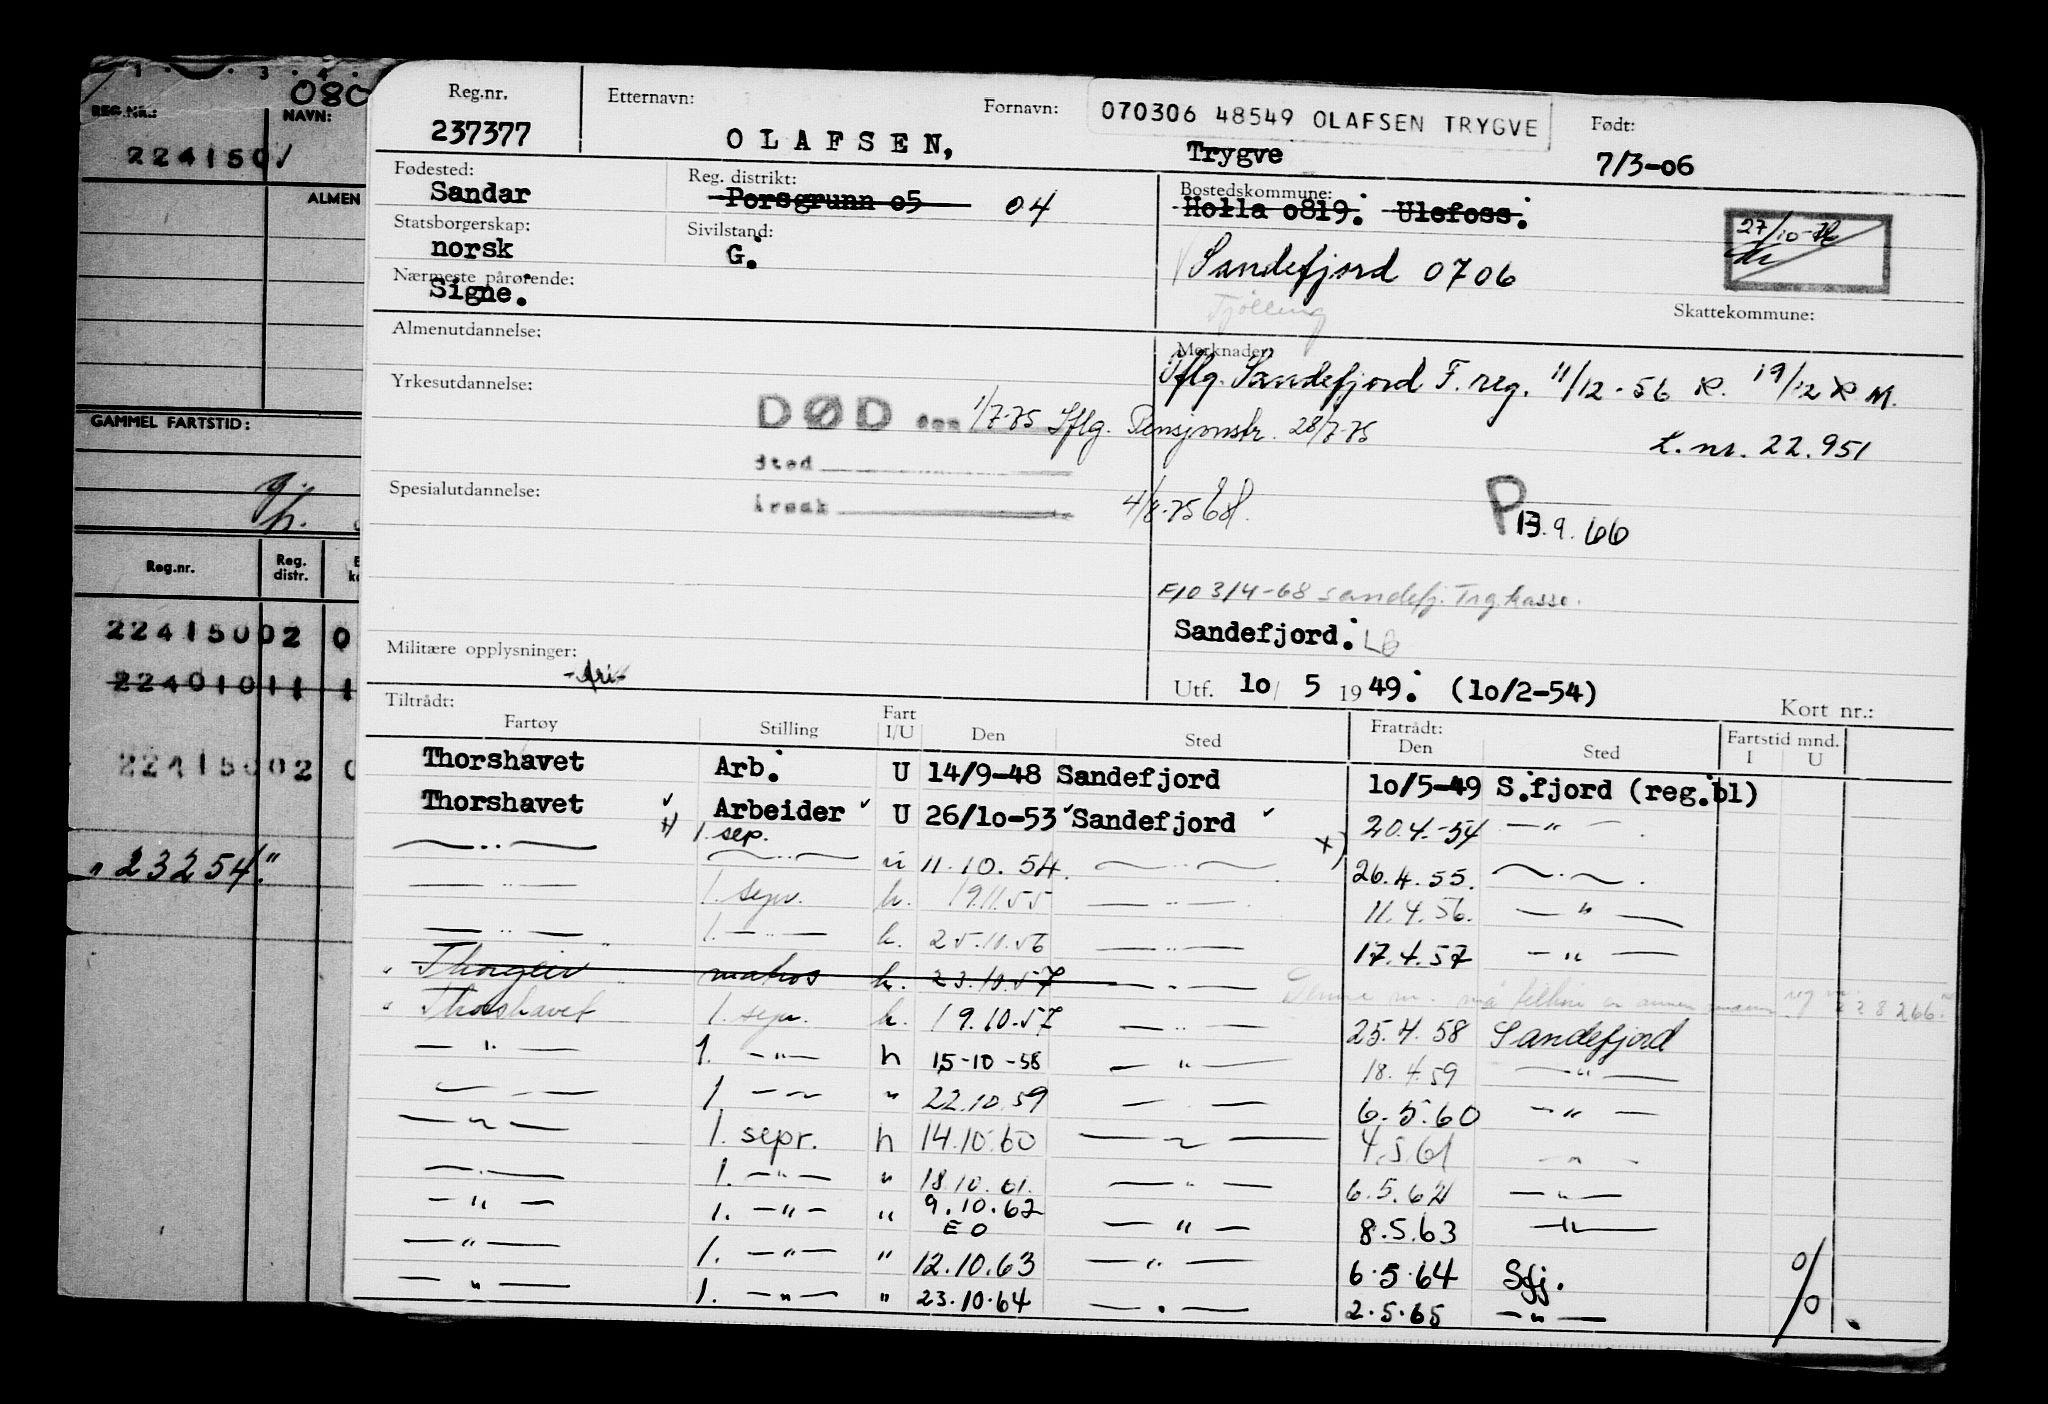 1 . . 3 . 4 .
080
REG.NR.: NAVN:
2241501
ALMEN
GAMMEL FARTSTID:
Reg.nr. Reg. distr.
22415002 0
22401011 1
22415002 0
"23254."
Reg.nr. Etternavn: Fornavn: 070306 48549 OLAFSEN TRYGVE Født:
237377 OLAFSEN, Trygve 7/3-06
Fødested: Reg. distrikt: Bostedskommune:
Sandar Porsgrunn 05 04 Holla 0819. Ulefoss.
Statsborgerskap: Sivilstand:
norsk G. Sandefjord 0706
Nærmeste pårørende:
Signe. Tjølling
Skattekommune:
Almenutdannelse: Merknader:
Iflg. Sandefjord F. reg. 11/12-56 R. 19/12 R M.
Yrkesutdannelse:
DØD den 1/7-75 Iflg. Pensjonstr. 28/7-75
L. nr. 22.951
Sted
Spesialutdannelse:
Årsak 4/8-75
P 13.9.66
E/O 3/4-68 Sandefj. Trg.kasse.
Sandefjord. LB
Militære opplysninger:
-fri-
Utf. 10/ 5 1949. (10/2-54) Kort nr.:
Tiltrådt: Fratrådt: Fartstid mnd.
Fartøy Stilling Fart I/U Den Sted Den Sted I U
Thorshavet Arb. U 14/9-48 Sandefjord 10/5-49 S.fjord (reg.bl)
Thorshavet Arbeider U 26/10-53 Sandefjord 20.4.-54 —"—
—"— 1. sep. —"— u 11.10.54. —"— x) 26.4.55. —"—
—"— 1. sepr. h. 19.11.55 —"— 11.4.56. —"—
—"— 1. —"— h. 25.10.56 —"— 17.4.57 —"—
" Thorgeir " matros h. 23.10.57 —"— Denne m. må tilhøre en annen mann reg nr. 228266.
" Thorshavet 1. sepr. h. 19.10.57 —"— 25.4.58 Sandefjord
—"— 1. —"— h 15-10-58 —"— 18.4.59 —"—
—"— 1 —"— " 22.10.59 —"— 6.5.60 —"—
—"— 1. sepr. h 14.10.60 —"— 4.5.61 —"—
—"— 1. —"— " 18.10.61. —"— 6.5.62 —"—
—"— 1. —"— " 9.10.62 —"— 8.5.63 —"—
EO
—"— 1. —"— " 12.10.63 —"— 6.5.64 Sfj.
—"— 1. —"— " 23.10.64 —"— 2.5.65 —"— 0/0